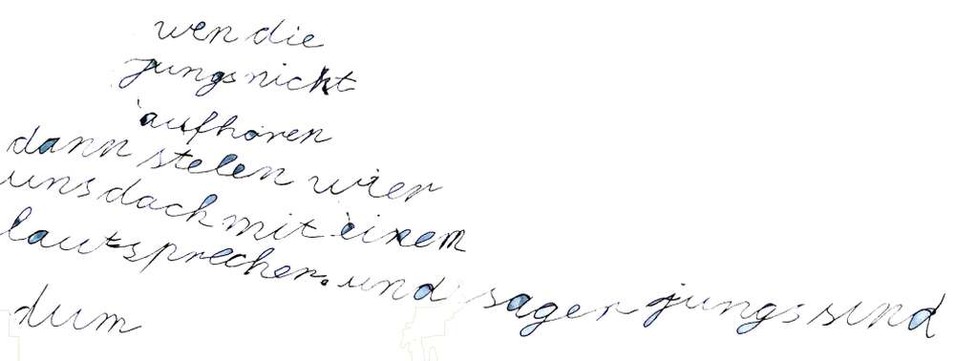 wen die
jungs nicht
aufhören
dann stelen wier
uns dach mit einem
lautsprecher. und sagen jungs sind
dum